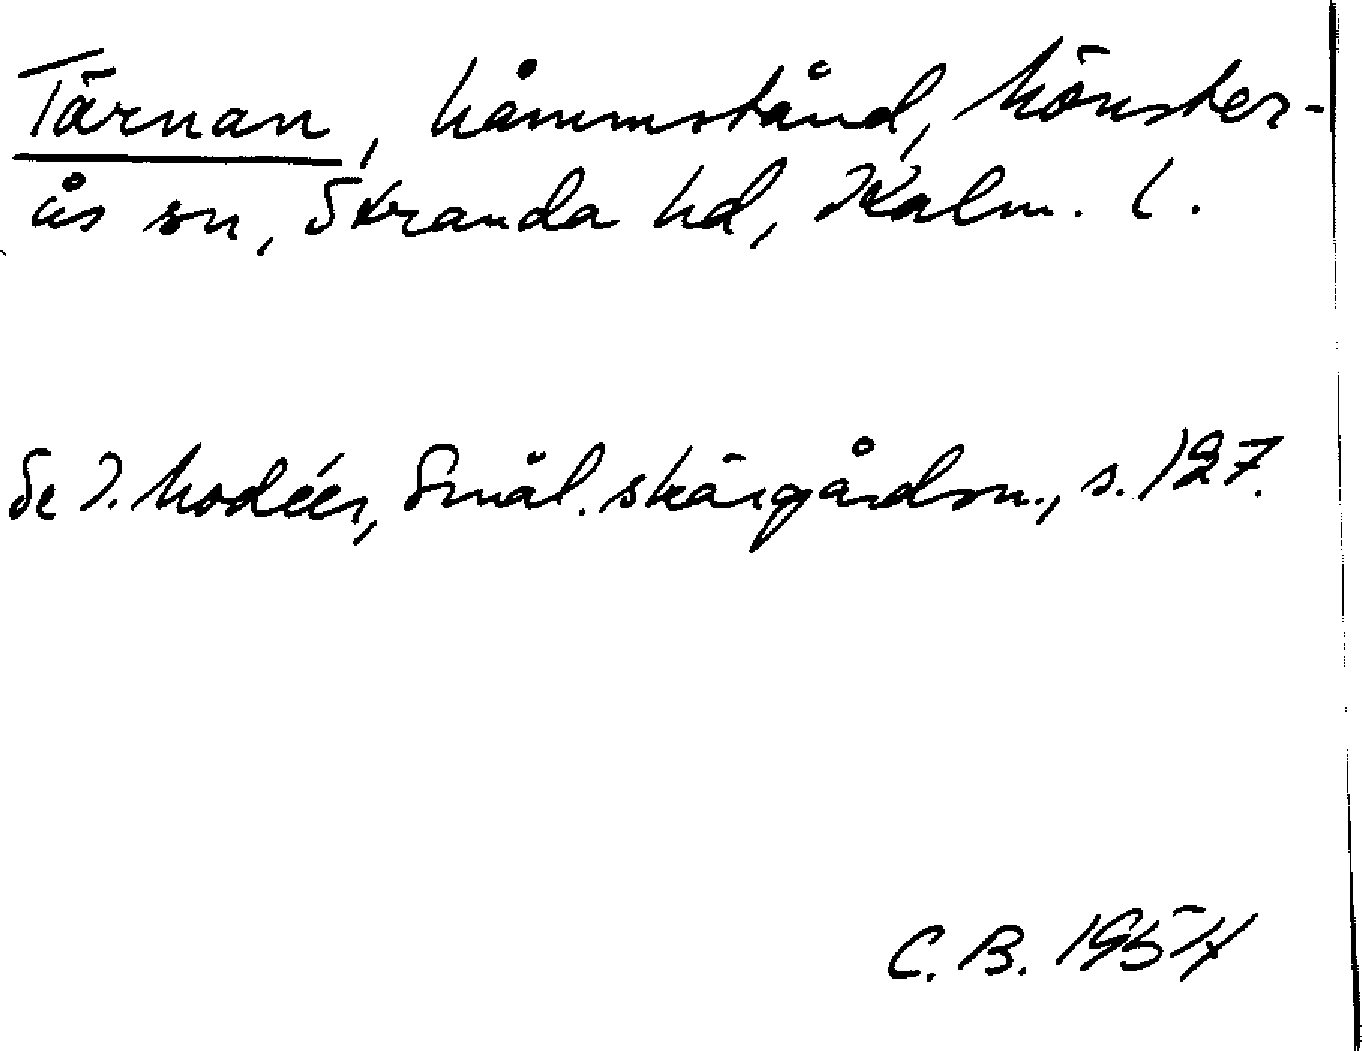 Tärnan, håmmstånd, Mönster-
ås sn, Stranda hd, Kalm. l.
Se I. Modéer, Smål. skärgårdsn., s. 127.
C. B. 1954